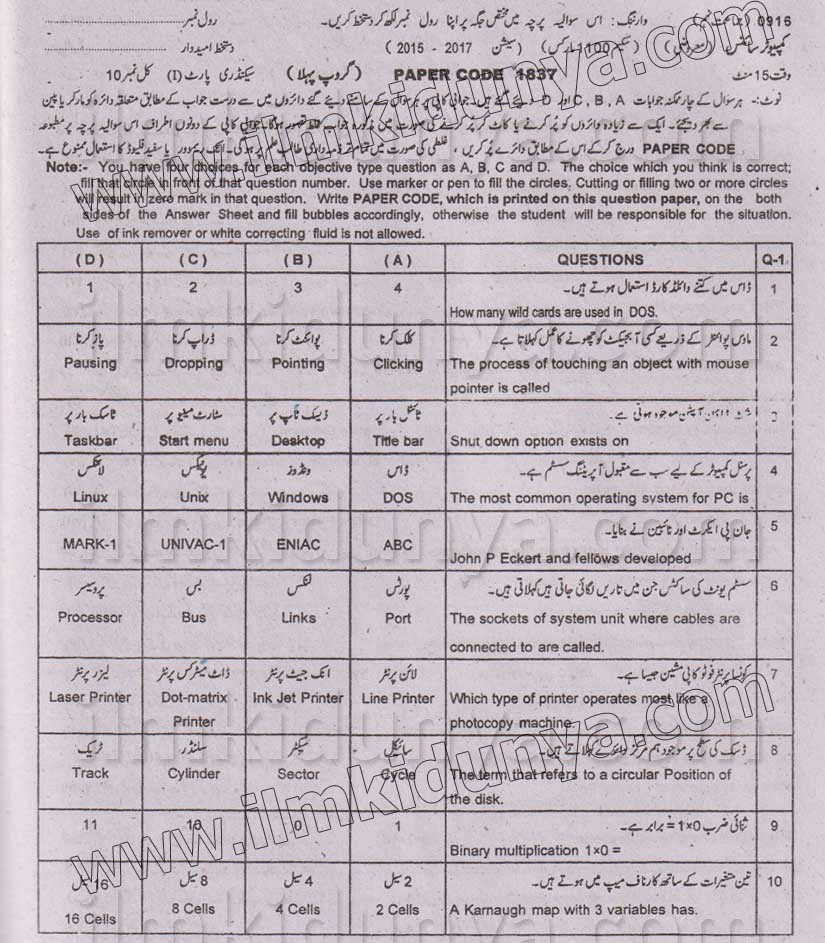 0916 وارننگ: اس سوالیہ پرچہ میں مختص جگہ پر اپنا رول نمبر لکھ کر دستخط کریں۔ رول نمبر
کمپیوٹر سائنس (معروضی) (سکیم 1100 مارکس) (سیشن 2017 - 2015) دستخط امیدوار
وقت 15 منٹ PAPER CODE 1837 (گروپ پہلا) سیکنڈری پارٹ (I) کل نمبر 10
نوٹ:- ہر سوال کے چار ممکنہ جوابات A ,B ,C اور D دیئے گئے ہیں۔ جوابی کاپی پر ہر سوال کے سامنے دیئے گئے دائروں میں سے درست جواب کے مطابق متعلقہ دائرہ کو مارکر یا پین
سے بھر دیجئے۔ ایک سے زیادہ دائروں کو پُر کرنے یا کاٹ کر پُر کرنے کی صورت میں مذکورہ جواب غلط تصور ہوگا۔ جوابی کاپی کے دونوں اطراف اس سوالیہ پرچہ پر مطبوعہ
PAPER CODE درج کر کے اس کے مطابق دائرے پُر کریں، غلطی کی صورت میں تمام تر ذمہ داری طالب علم پر ہوگی۔ انک ریموور یا سفید فلیوڈ کا استعمال ممنوع ہے۔
Note:- You have four choices for each objective type question as A, B, C and D. The choice which you think is correct;
fill that circle in front of that question number. Use marker or pen to fill the circles. Cutting or filling two or more circles
will result in zero mark in that question. Write PAPER CODE, which is printed on this question paper, on the both
sides of the Answer Sheet and fill bubbles accordingly, otherwise the student will be responsible for the situation.
Use of ink remover or white correcting fluid is not allowed.
(D) (C) (B) (A) QUESTIONS Q-1
1 2 3 4 ڈاس میں کتنے وائلڈ کارڈ استعمال ہوتے ہیں۔ 1
How many wild cards are used in DOS.
پاز کرنا ڈراپ کرنا پوائنٹ کرنا کلک کرنا ماؤس پوائنٹر کے ذریعے کسی آبجیکٹ کو چھونے کا عمل کہلاتا ہے۔ 2
Pausing Dropping Pointing Clicking The process of touching an object with mouse
pointer is called
ٹاسک بار پر سٹارٹ مینیو پر ڈیسک ٹاپ پر ٹائٹل بار پر آپشن موجود ہوتی ہے۔
Taskbar Start menu Desktop Title bar Shut down option exists on
لائنکس یونیکس ونڈوز ڈاس پرسنل کمپیوٹر کے لیے سب سے مقبول آپریٹنگ سسٹم ہے۔ 4
Linux Unix Windows DOS The most common operating system for PC is
جان پی ایکرٹ اور ساتھیوں نے بنایا۔ 5
MARK-1 UNIVAC-1 ENIAC ABC John P Eckert and fellows developed
پروسیسر بس لنکس پورٹس سسٹم یونٹ کی ساکٹس جن میں تاریں لگائی جاتی ہیں کہلاتی ہیں۔ 6
Processor Bus Links Port The sockets of system unit where cables are
connected to are called.
لیزر پرنٹر ڈاٹ میٹرکس پرنٹر انک جیٹ پرنٹر لائن پرنٹر کونسا پرنٹر فوٹو کاپی مشین جیسا ہے۔ 7
Laser Printer Dot-matrix Printer Ink Jet Printer Line Printer Which type of printer operates most like a
photocopy machine.
ٹریک سلنڈر سیکٹر سائیکل ڈسک کی سطح پر موجود ہم مرکز دائرے کہلاتے ہیں۔ 8
Track Cylinder Sector Cycle The term that refers to a circular Position of
the disk.
11 10 0 1 ثنائی ضرب 1×0 = برابر ہے۔ 9
Binary multiplication 1×0 =
16 سیل 8 سیل 4 سیل 2 سیل تین متغیرات کے ساتھ کارناف میپ میں ہوتے ہیں۔ 10
16 Cells 8 Cells 4 Cells 2 Cells A Karnaugh map with 3 variables has.
www.ilmkidunya.com
www.ilmkidunya.com
ilmkidunya.com
ilmkidunya.com
ilmkidunya.com
ilmkidunya.com